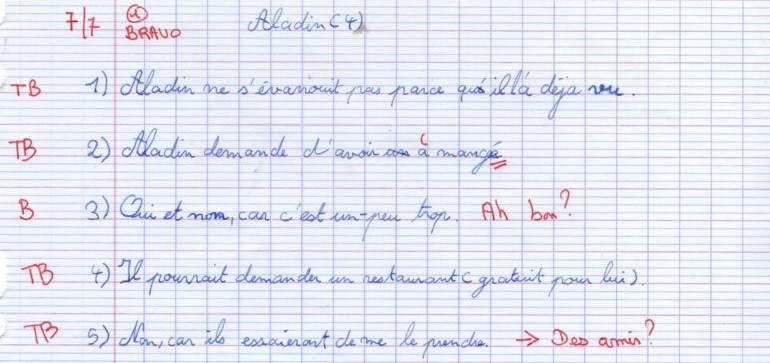 7/7 BRAVO Aladin (4)
TB 1) Aladin ne s'évanouit pas parce qu'il l'a déja vu.
TB 2) Aladin demande d'avoir à mangé
B 3) Oui et non, car c'est un-peu trop. Ah bon?
TB 4) Il pourrait demander un restaurant (gratuit pour lui).
TB 5) Non, car ils essaieront de me le prendre. → Des amis?